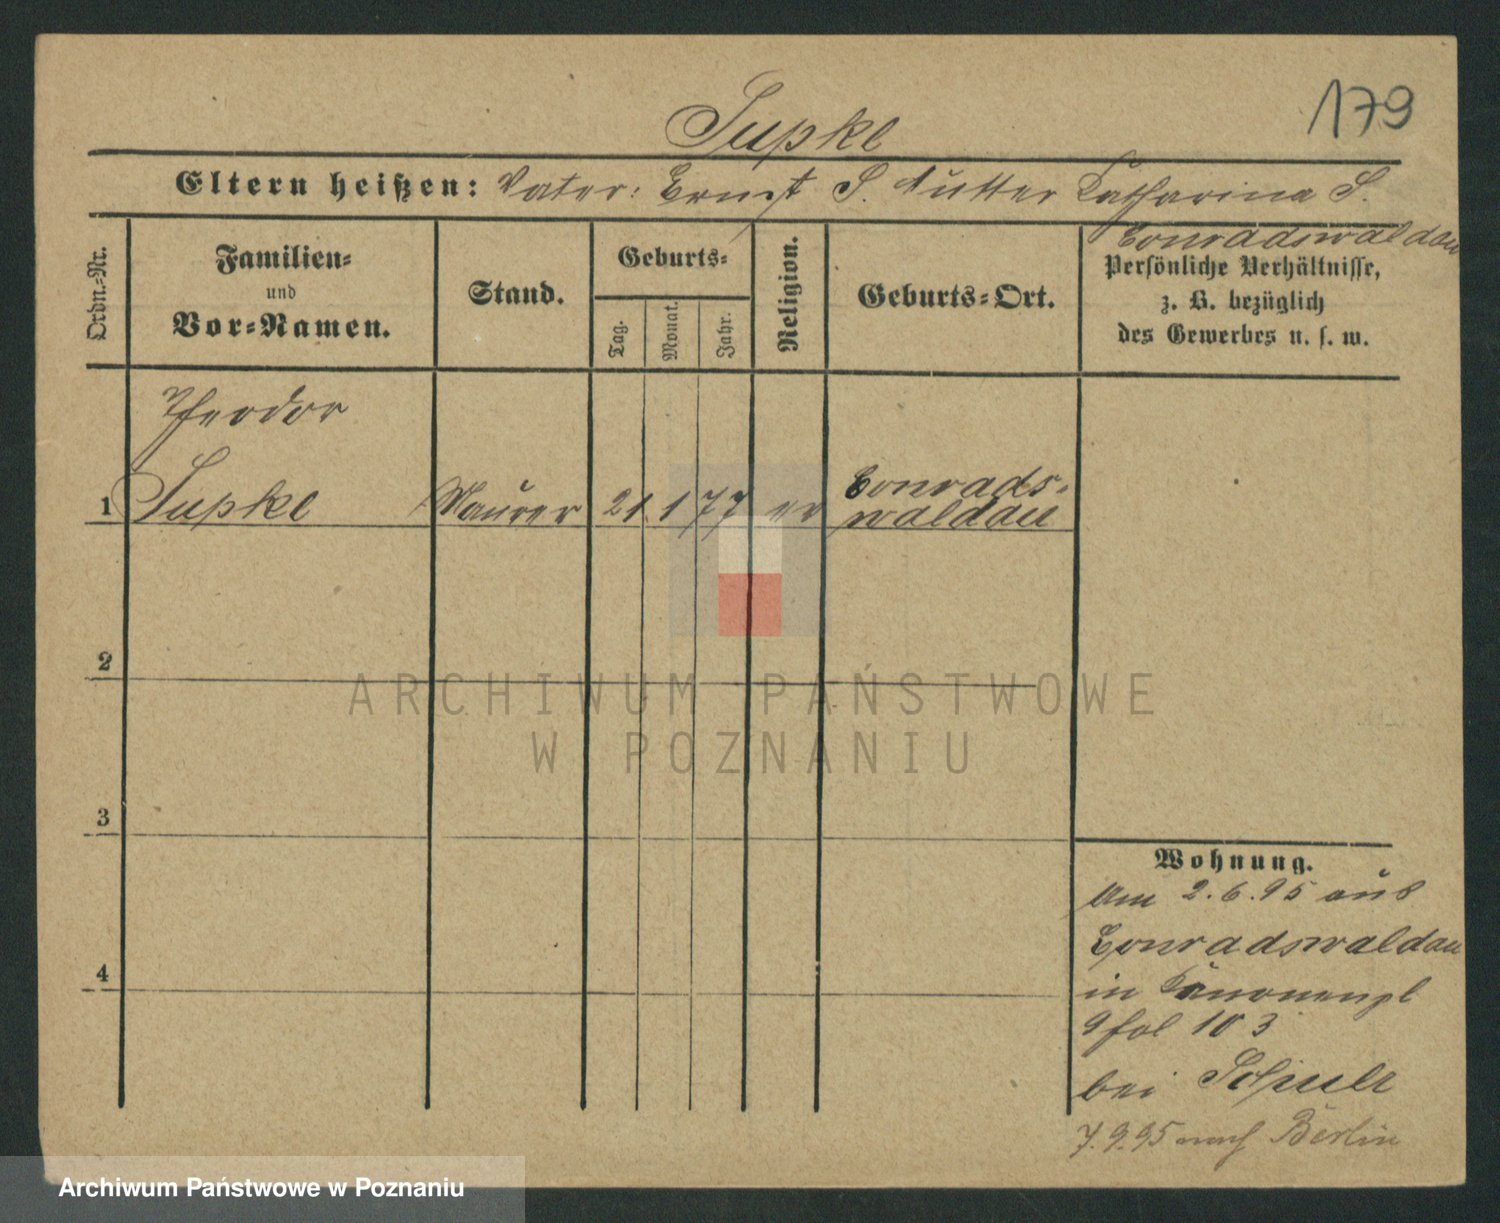 179
Supke
Eltern heißen: Vater: Ernst S. Mutter Catharina S.
Conradswaldau
Ordn.-Nr.
Familien-
und
Vor-Namen.
Stand.
Geburts-
Tag.
Monat.
Jahr.
Religion.
Geburts-Ort.
Persönliche Verhältnisse,
z. B. bezüglich
des Gewerbes u. s. w.
Theodor
1 Supke Maurer 21 1 77 ev Conrads-
waldau
2
3
4
Wohnung.
Am 2.6.95 aus
Conradswaldau
in Kanonenpl
9 fol 103
bei Schulz
7.9.95 nach Berlin
ARCHIWUM PAŃSTWOWE
W POZNANIU
Archiwum Państwowe w Poznaniu